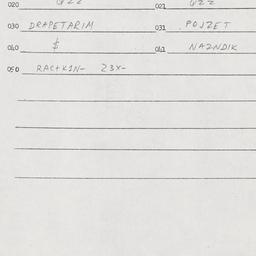 020 021
030 DRAPETARIM 031 POJZET
040 $ 041 NAZNDIK
050 RACTKIN- 23X-